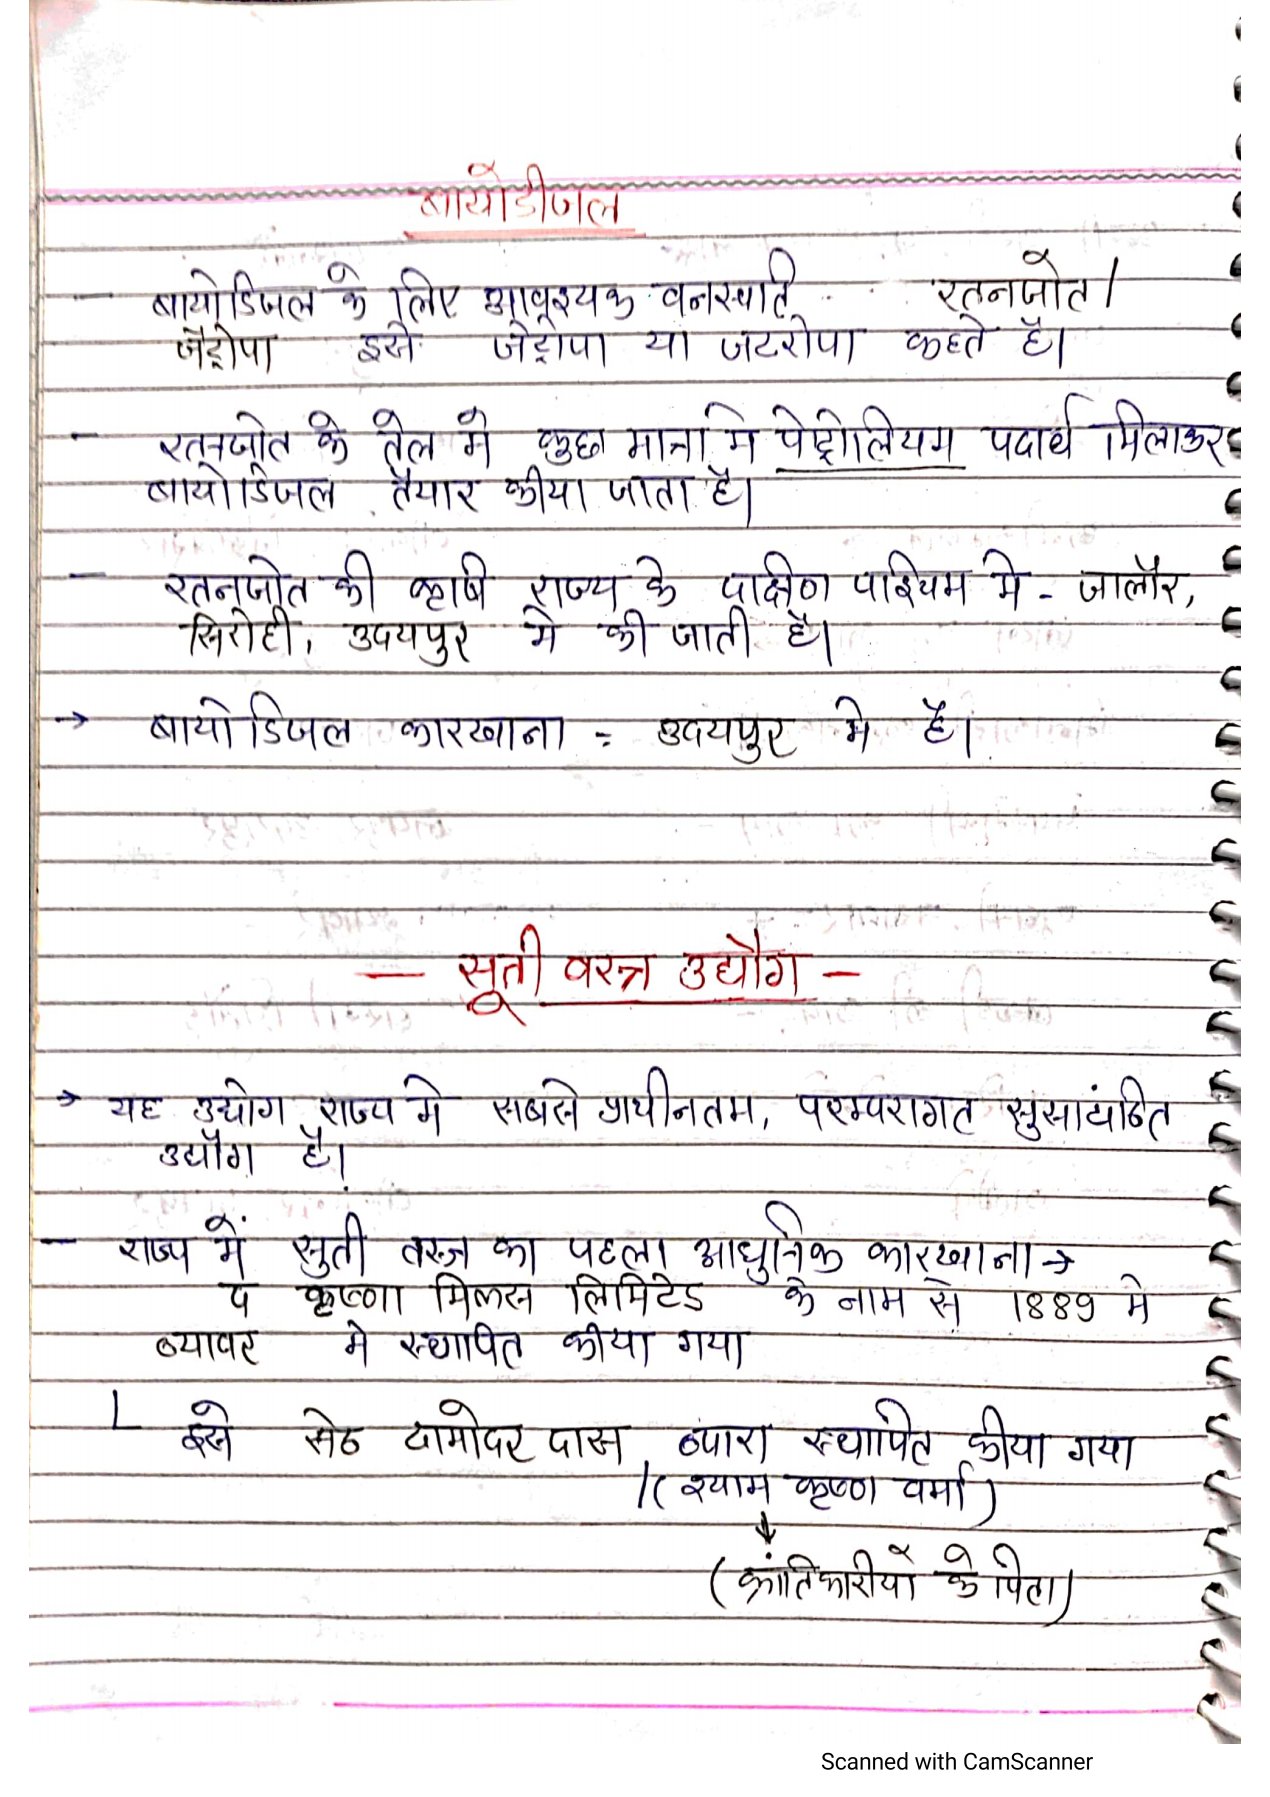 बायोडीजल
- बायोडिजल के लिए आवश्यक वनस्पति रतनजोत/
जेट्रोपा इसे जेट्रोपा या जटरोपा कहते है।
- रतनजोत के तेल मे कुछ मात्रा मे पेट्रोलियम पदार्थ मिलाकर
बायोडिजल तैयार कीया जाता है।
- रतनजोत की कृषि राज्य के दक्षिण पश्चिम मे - जालौर,
सिरोही, उदयपुर मे की जाती है।
→ बायोडिजल कारखाना = उदयपुर मे है।
— सूती वस्त्र उद्यौग —
→ यह उद्योग राज्य मे सबसे प्राचीनतम, परम्परागत सुसंगठित
उद्यौग है।
- राज्य में सुती वस्त्र का पहला आधुनिक कारखाना →
द कृष्णा मिल्स लिमिटेड के नाम से 1889 मे
ब्यावर मे स्थापित कीया गया
└ इसे सेठ दामोदर दास व्यारा स्थापित कीया गया
/(श्याम कृष्ण वर्मा)
↓
(क्रांतिकारीयों के पिता)
Scanned with CamScanner